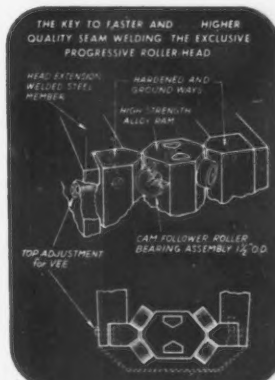 THE KEY TO FASTER AND HIGHER
QUALITY SEAM WELDING THE EXCLUSIVE
PROGRESSIVE ROLLER-HEAD
HEAD EXTENSION
WELDED STEEL
MEMBER
HARDENED AND
GROUND WAYS
HIGH STRENGTH
ALLOY RAM
CAM FOLLOWER ROLLER
BEARING ASSEMBLY 1½" O.D.
TOP ADJUSTMENT
for VEE